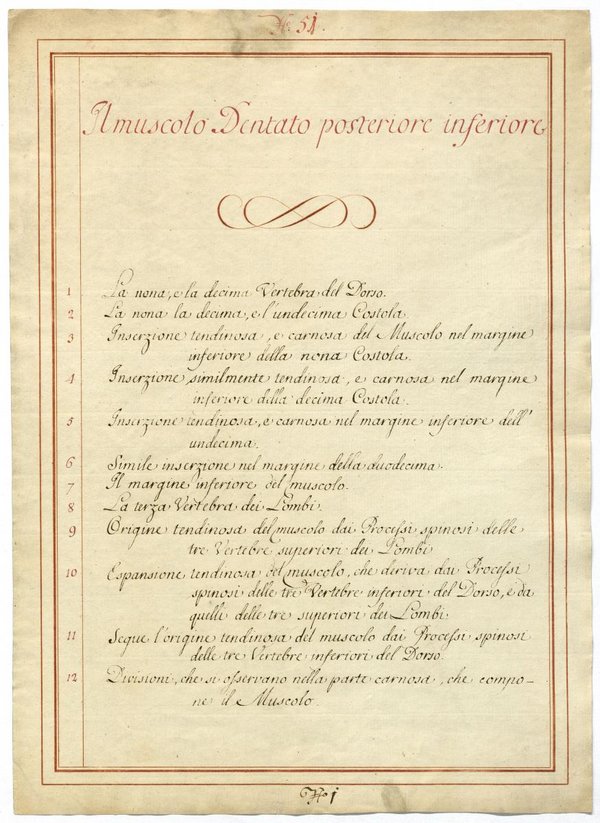 No. 51.
Il muscolo Dentato posteriore inferiore
1 La nona, e la decima Vertebra del Dorso.
2 La nona la decima, e l'undecima Costola.
3 Inserzione tendinosa, e carnosa del Muscolo nel margine
inferiore della nona Costola.
4 Inserzione similmente tendinosa, e carnosa nel margine
inferiore della decima Costola.
5 Inserzione tendinosa, e carnosa nel margine inferiore dell'
undecima.
6 Simile inserzione nel margine della duodecima.
7 Il margine inferiore del muscolo.
8 La terza Vertebra dei Lombi.
9 Origine tendinosa del muscolo dai Processi spinosi delle
tre Vertebre superiori dei Lombi
10 Espansione tendinosa del muscolo, che deriva dai Processi
spinosi delle tre Vertebre inferiori del Dorso, e da
quelli delle tre superiori dei Lombi.
11 Segue l'origine tendinosa del muscolo dai Processi spinosi
delle tre Vertebre inferiori del Dorso.
12 Divisioni, che si osservano nella parte carnosa, che compo-
ne il Muscolo.
No 1